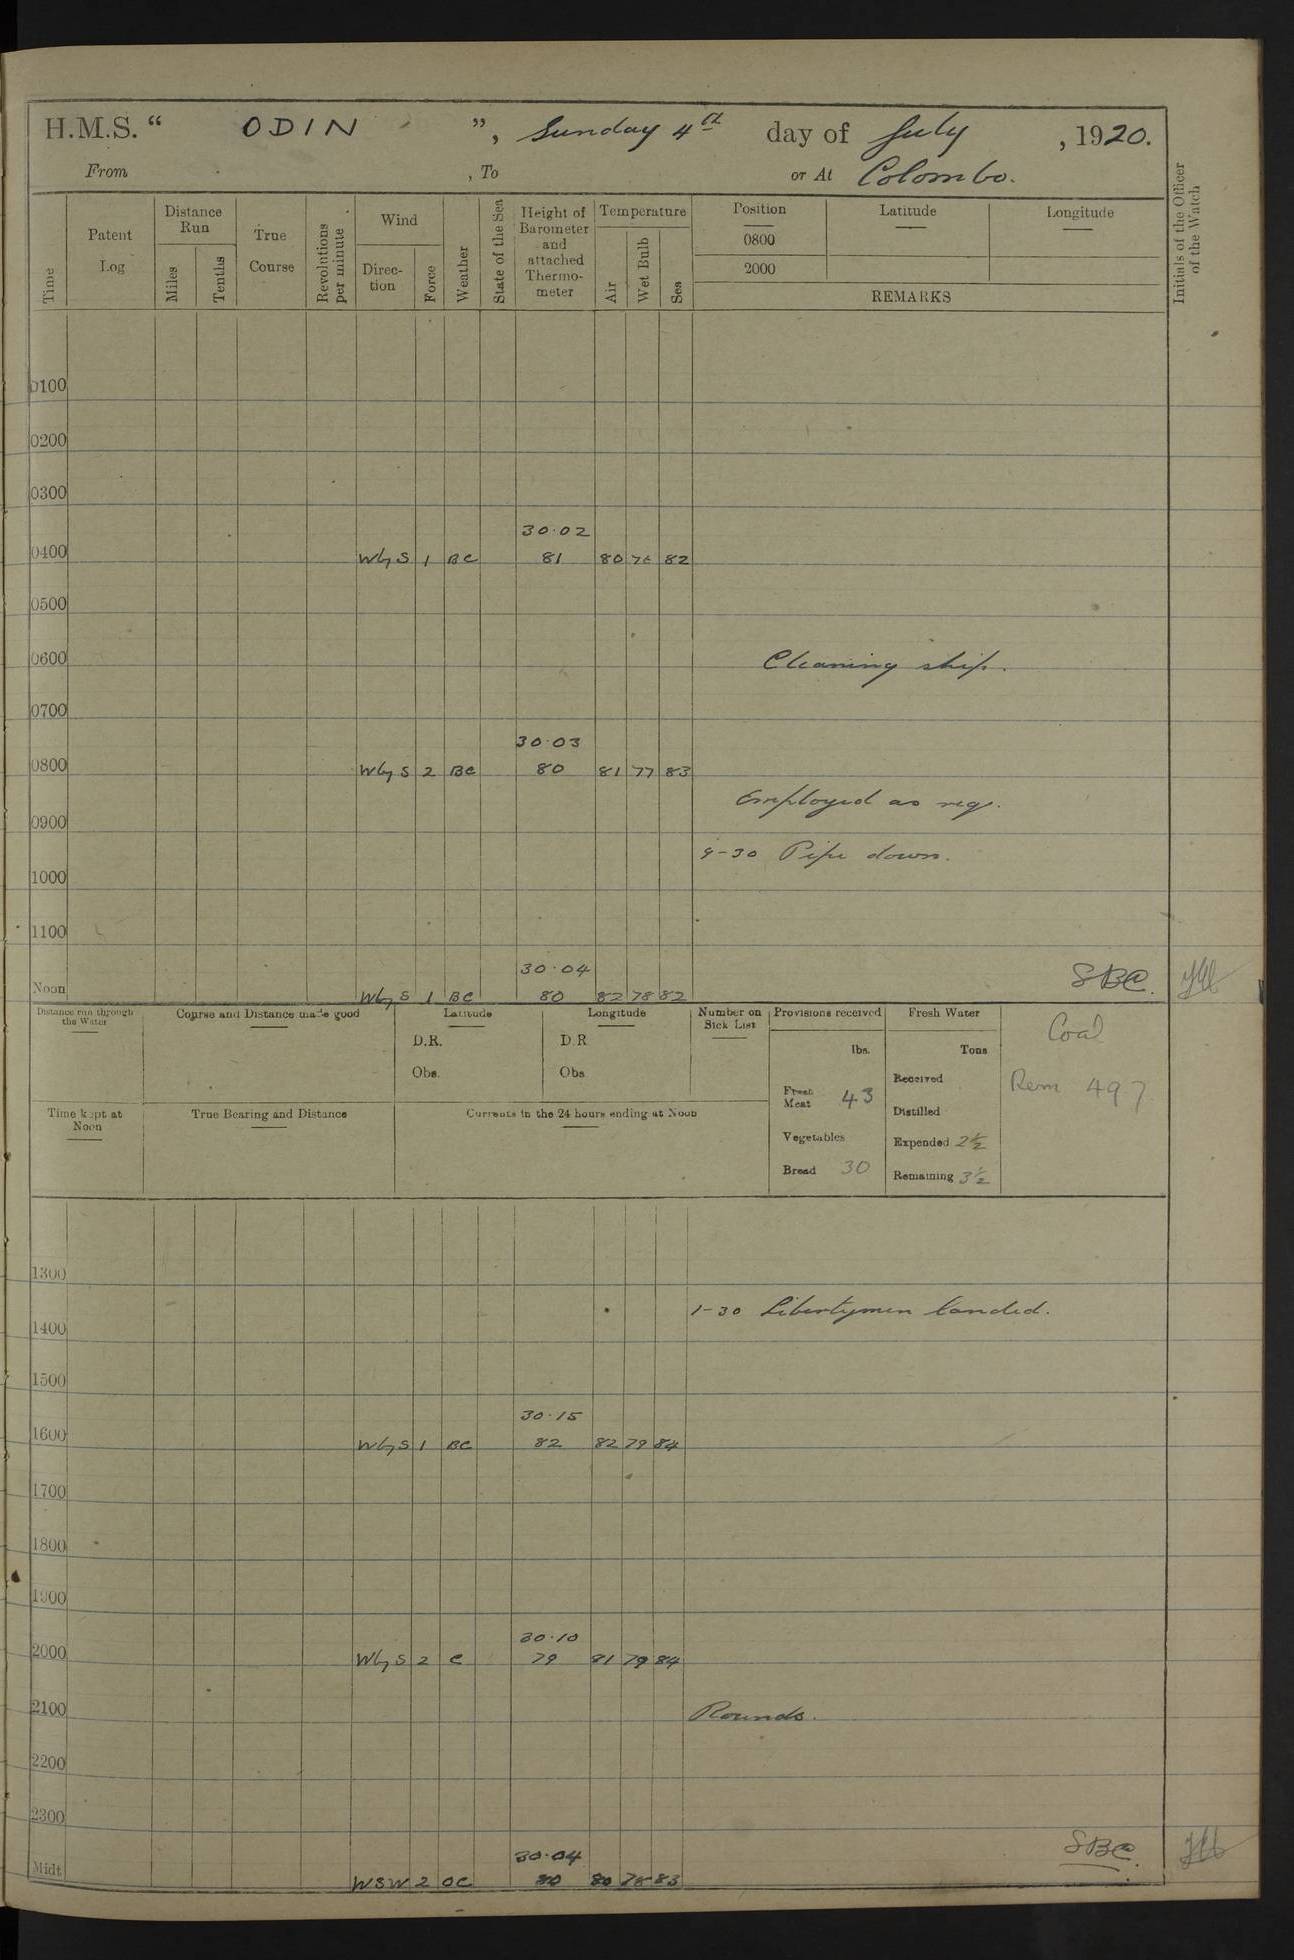 H.M.S. “ ODIN ”, Sunday 4th day of July , 1920.
From , To or At Colombo.
Initials of the Officer of the Watch
Time
Patent Log
Distance Run
Miles
Tenths
True Course
Revolutions per minute
Wind
Direc-tion
Force
Weather
State of the Sea
Height of Barometer and attached Thermo-meter
Temperature
Air
Wet Bulb
Sea
Position
0800
2000
Latitude
Longitude
REMARKS
0100
0200
0300
30·02
0400 W by S 1 BC 81 80 76 82
0500
0600 Cleaning ship.
0700
30·03
0800 W by S 2 BC 80 81 77 83
Employed as req.
0900
9-30 Pipe down.
1000
1100
30·04
SBC.
Noon W by S 1 BC 80 82 78 82
Distance run through the Water
Course and Distance made good
Latitude
D.R.
Obs.
Longitude
D.R
Obs
Number on Sick List
Provisions received
lbs.
Fresh Meat 43
Vegetables
Bread 30
Fresh Water
Tons
Received
Distilled
Expended 2½
Remaining 3½
Coal
Rem 497
Time kept at Noon
True Bearing and Distance
Currents in the 24 hours ending at Noon
1300
1-30 Libertymen landed.
1400
1500
30·15
1600 W by S 1 BC 82 82 79 84
1700
1800
1900
30·10
2000 W by S 2 C 79 81 79 84
2100 Rounds.
2200
2300
30·04
SBC.
Midt WSW 2 OC 80 80 78 83